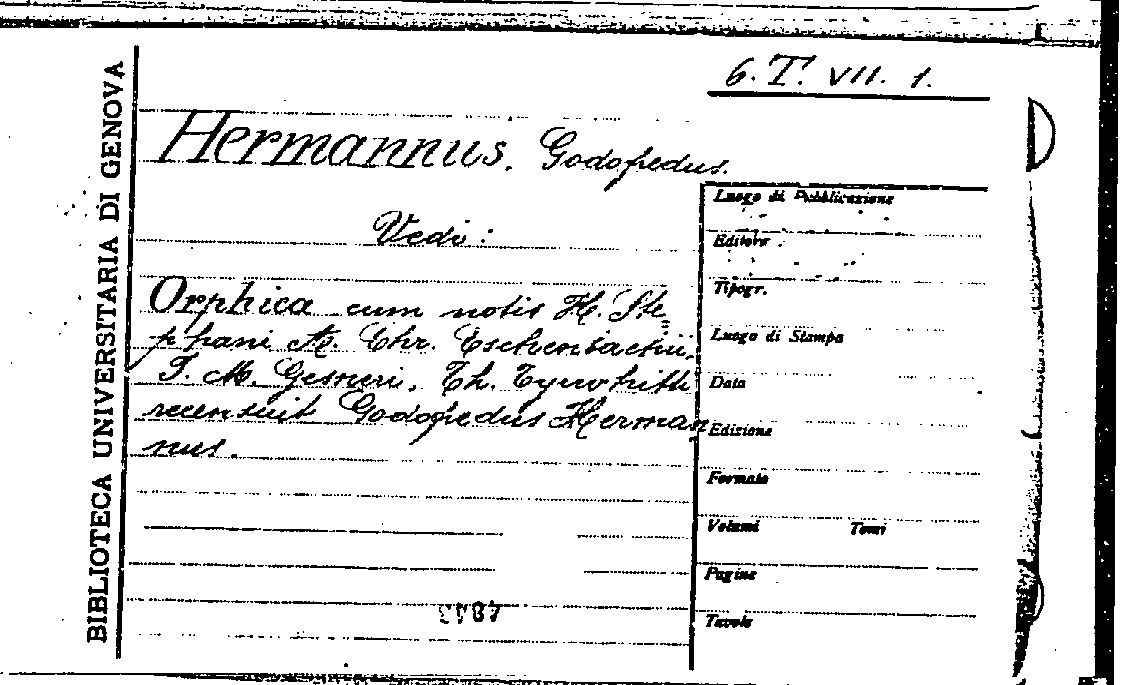 6. T. VII. 1.
BIBLIOTECA UNIVERSITARIA DI GENOVA
Hermannus. Godofredus.
Vedi:
Orphica cum notis H. Ste
phani A. Chr. Eschenbachii,
J. M. Gesneri, Th. Tyrwhitti
recensuit Godofredus Herman
nus.
Luogo di Pubblicazione
Editore
Tipogr.
Luogo di Stampa
Data
Edizione
Formato
Volumi Tomi
Pagine
Tavole